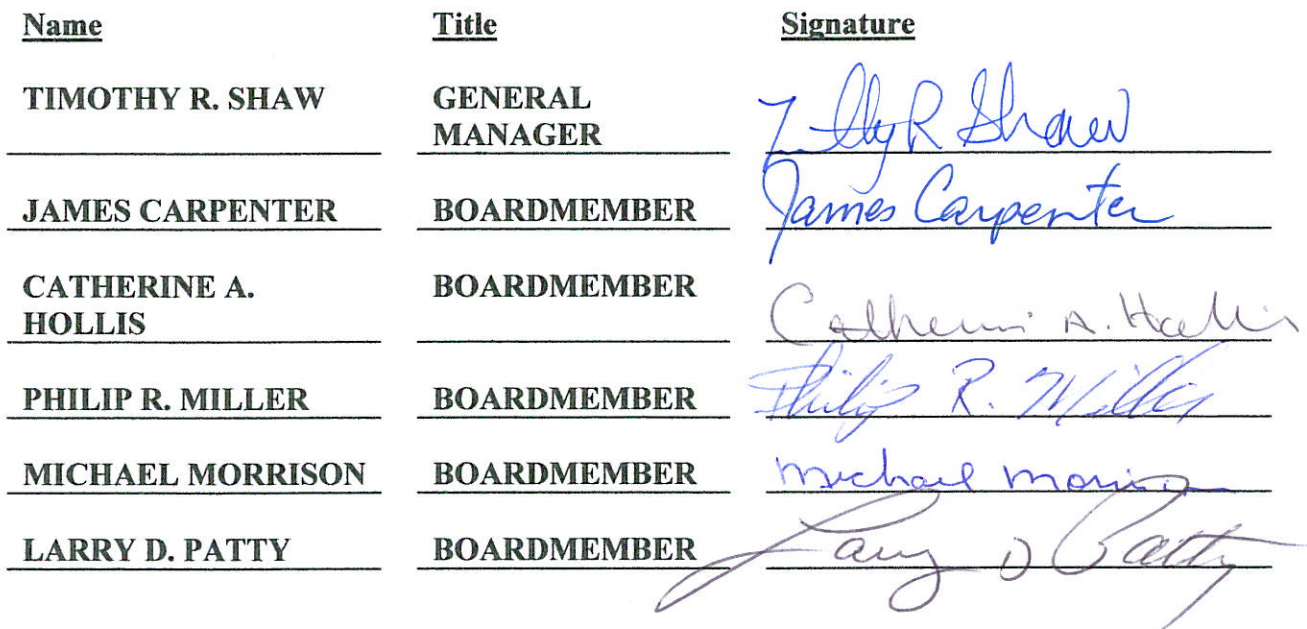 Name Title Signature
TIMOTHY R. SHAW GENERAL MANAGER R Shaw
JAMES CARPENTER BOARDMEMBER James Carpenter
CATHERINE A. HOLLIS BOARDMEMBER Catherine A. Hollis
PHILIP R. MILLER BOARDMEMBER Philip R. Miller
MICHAEL MORRISON BOARDMEMBER Michael Morrison
LARRY D. PATTY BOARDMEMBER Larry D Patty